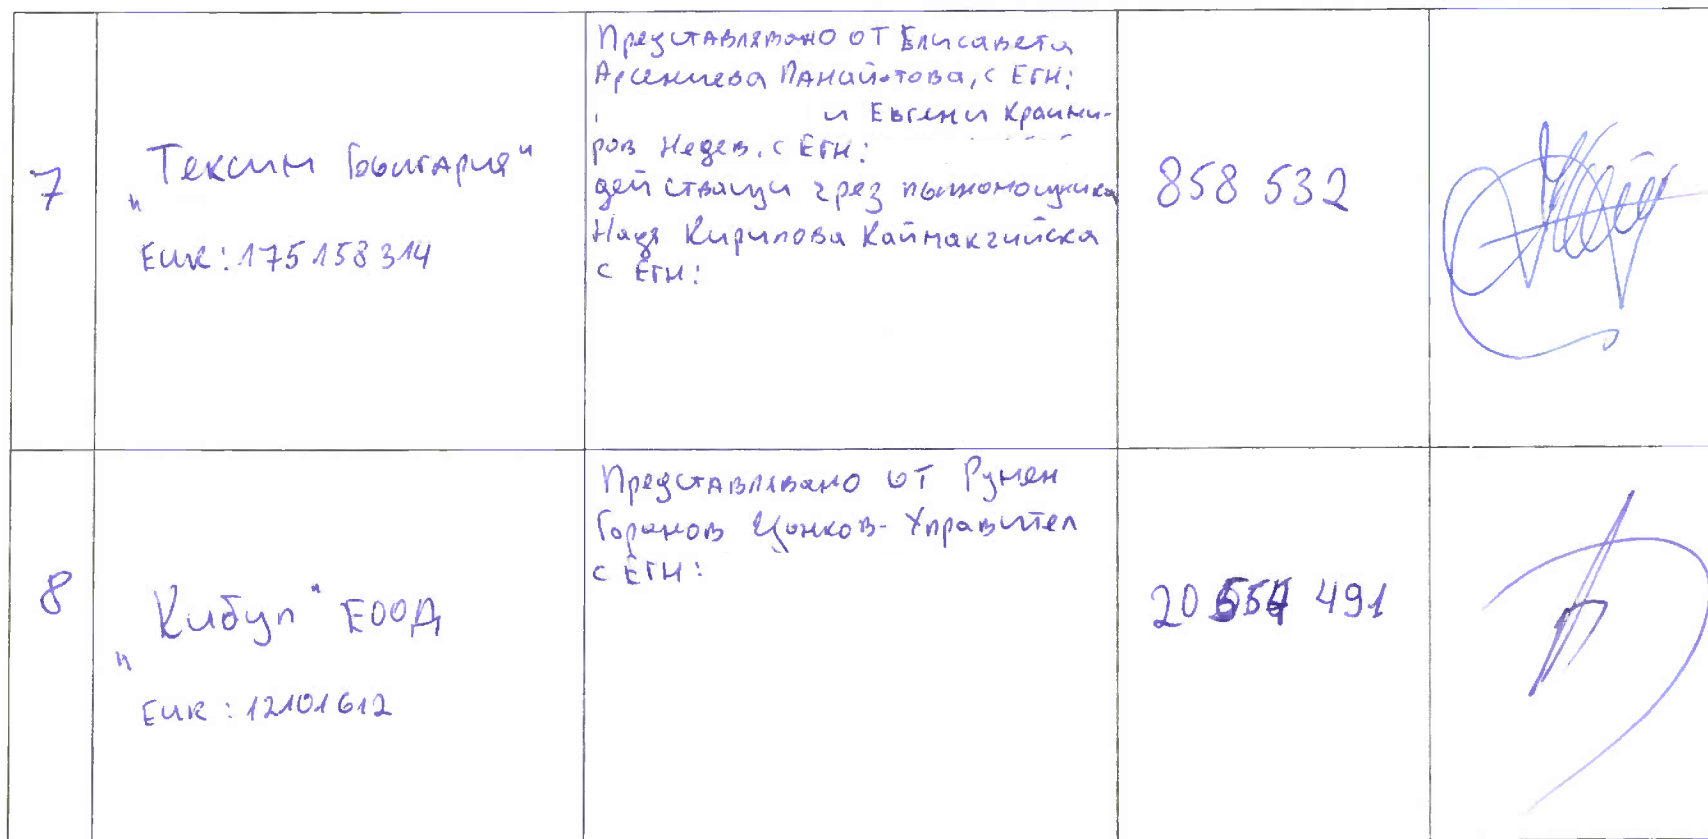 7
„Тексим България“
ЕИК: 175158314
Представлявано от Елисавета
Арсениева Панайотова, с ЕГН:
и Евгени Краими-
ров Недев, с ЕГН:
действащи чрез пълномощника
Надя Кирилова Каймакчийска
с ЕГН:
858 532
8
„Кибул“ ЕООД
ЕИК: 12101612
Представлявано от Румен
Горанов Цонков - Управител
с ЕГН:
20 554 491